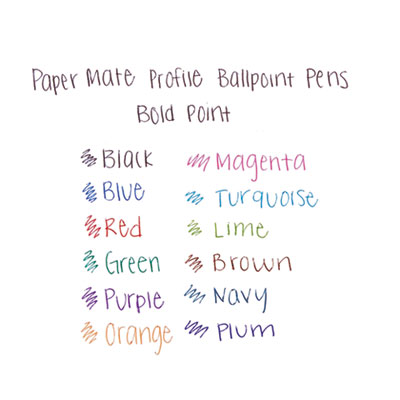 Paper Mate Profile Ballpoint Pens
Bold Point
Black
Blue
Red
Green
Purple
Orange
Magenta
Turquoise
Lime
Brown
Navy
Plum